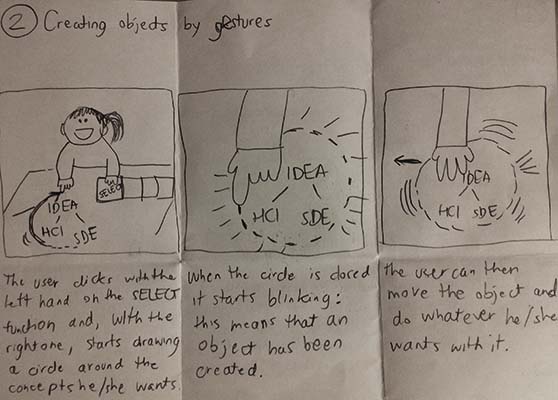 2 Creating objects by gestures
SELECT
IDEA
HCI SDE
The user clicks with the
left hand on the SELECT
function and, with the
right one, starts drawing
a circle around the
concepts he/she wants.
IDEA
HCI SDE
When the circle is closed
it starts blinking:
this means that an
object has been
created.
IDEA
HCI SDE
the user can then
move the object and
do whatever he/she
wants with it.